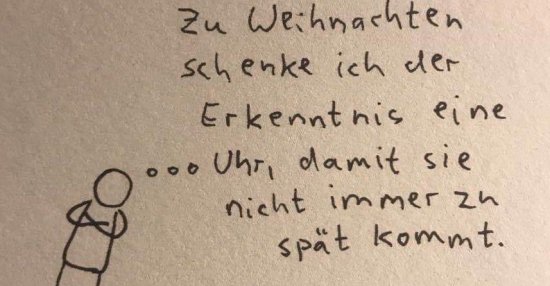 Zu Weihnachten
schenke ich der
Erkenntnis eine
Uhr, damit sie
nicht immer zu
spät kommt.